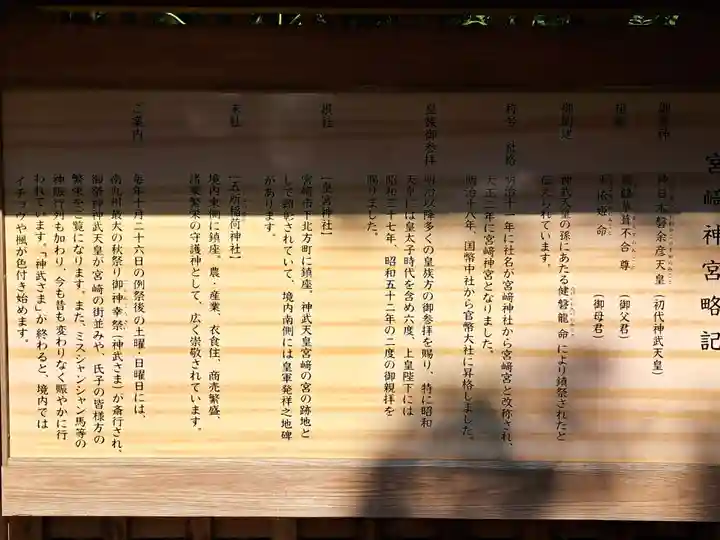 宮﨑神宮略記
御祭神 神日本磐余彦天皇（初代神武天皇）
相殿 鸕鷀草葺不合尊（御父君）
玉依姫命（御母君）
御創建 神武天皇の孫にあたる健磐龍命により鎮祭されたと
伝えられています。
称号・社格 明治十一年に社名が宮﨑神社から宮﨑宮と改称され、
大正二年に宮﨑神宮となりました。
明治十八年、国幣中社から官幣大社に昇格しました。
皇族御参拝 明治以降多くの皇族方の御参拝を賜り、特に昭和
天皇には皇太子時代を含め六度、上皇陛下には
昭和三十七年、昭和五十二年の二度の御親拝を
賜りました。
摂社 【皇宮神社】
宮崎市下北方町に鎮座。神武天皇宮崎の宮の跡地と
して顕彰されていて、境内南側には皇軍発祥之地碑
があります。
末社 【五所稲荷神社】
境内東側に鎮座。農・産業、衣食住、商売繁盛、
諸業繁栄の守護神として、広く崇敬されています。
ご案内 毎年十月二十六日の例祭後の土曜・日曜日には、
南九州最大の秋祭り御神幸祭（神武さま）が斎行され、
御祭神神武天皇が宮崎の街並みや、氏子の皆様方の
繁栄をご覧になります。また、ミスシャンシャン馬等の
神賑行列も加わり、今も昔も変わりなく賑やかに行
われています。「神武さま」が終わると、境内では
イチョウや楓が色付き始めます。